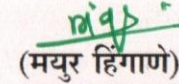 (मयुर हिंगाणे)